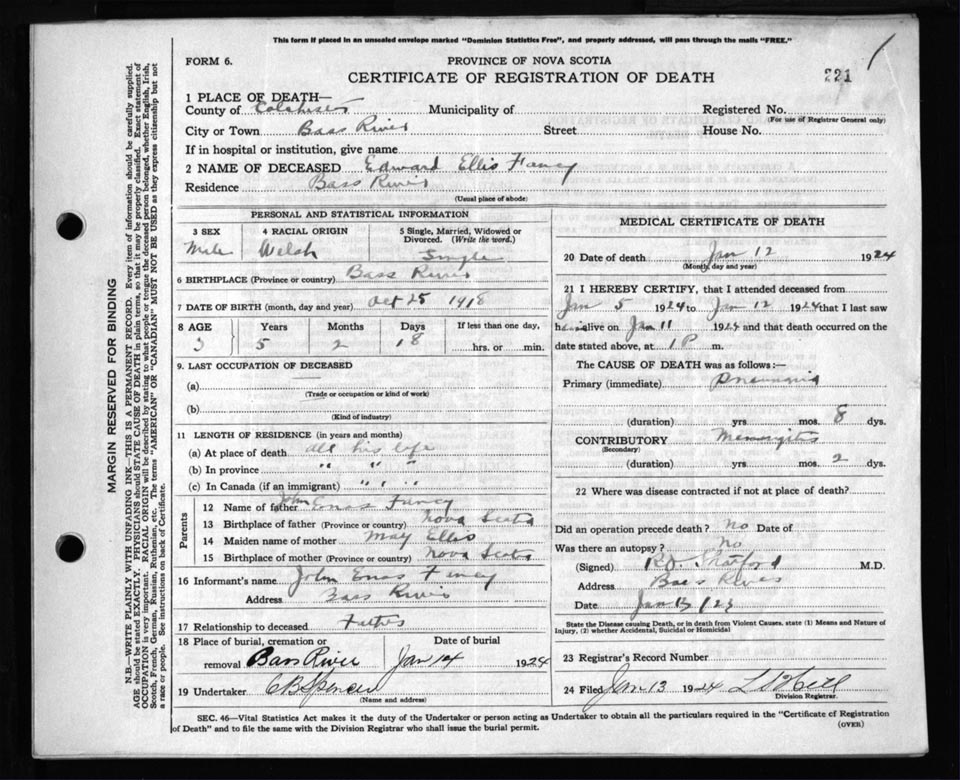 This form if placed in an unsealed envelope marked "Dominion Statistics Free", and properly addressed, will pass through the mails "FREE."
FORM 6.
PROVINCE OF NOVA SCOTIA
CERTIFICATE OF REGISTRATION OF DEATH
221
1 PLACE OF DEATH—
County of Colchester Municipality of Registered No.
(For use of Registrar General only)
City or Town Bass River Street House No.
If in hospital or institution, give name
2 NAME OF DECEASED Edward Ellis Fancy
Residence Bass River
(Usual place of abode)
PERSONAL AND STATISTICAL INFORMATION
3 SEX 4 RACIAL ORIGIN 5 Single, Married, Widowed or Divorced. (Write the word.)
Male Welsh Single
6 BIRTHPLACE (Province or country) Bass River
7 DATE OF BIRTH (month, day and year) Oct 25 1918
8 AGE Years Months Days If less than one day,
5 2 18 hrs. or min.
9. LAST OCCUPATION OF DECEASED
(a)
(Trade or occupation or kind of work)
(b)
(Kind of industry)
11 LENGTH OF RESIDENCE (in years and months)
(a) At place of death all his life
(b) In province " " "
(c) In Canada (if an immigrant) " " "
Parents
12 Name of father John Enos Fancy
13 Birthplace of father (Province or country) Nova Scotia
14 Maiden name of mother May Ellis
15 Birthplace of mother (Province or country) Nova Scotia
16 Informant's name John Enos Fancy
Address Bass River
17 Relationship to deceased Father
18 Place of burial, cremation or removal Bass River
Date of burial Jan 14 1924
19 Undertaker C B Spencer
(Name and address)
MEDICAL CERTIFICATE OF DEATH
20 Date of death Jan 12 1924
(Month, day and year)
21 I HEREBY CERTIFY, that I attended deceased from
Jan 5 1924 to Jan 12 1924 that I last saw
him alive on Jan 11 1924 and that death occurred on the
date stated above, at 1 P m.
The CAUSE OF DEATH was as follows:—
Primary (immediate) Pneumonia
(duration) yrs. mos. 8 dys.
CONTRIBUTORY Meningitis
(Secondary)
(duration) yrs. mos. 2 dys.
22 Where was disease contracted if not at place of death?
Did an operation precede death? No Date of
Was there an autopsy? No
(Signed) M.D.
Address Bass River
Date Jan 13
State the Disease causing Death, or in death from Violent Causes, state (1) Means and Nature of Injury, (2) whether Accidental, Suicidal or Homicidal
23 Registrar's Record Number
24 Filed Jan 13 1924
Division Registrar.
SEC. 46—Vital Statistics Act makes it the duty of the Undertaker or person acting as Undertaker to obtain all the particulars required in the "Certificate of Registration
of Death" and to file the same with the Division Registrar who shall issue the burial permit.
(OVER)
MARGIN RESERVED FOR BINDING
N.B.—WRITE PLAINLY WITH UNFADING INK—THIS IS A PERMANENT RECORD. Every item of information should be carefully supplied.
AGE should be stated EXACTLY. PHYSICIANS should STATE CAUSE OF DEATH in plain terms, so that it may be properly classified. Exact statement of
OCCUPATION is very important. RACIAL ORIGIN will be described by stating to what people or tongue the deceased person belonged, whether English, Irish,
Scotch, French, German, Russian, Ruthenian, etc. The terms "AMERICAN" OR "CANADIAN" MUST NOT BE USED as they express citizenship but not
a race or people. See instructions on back of Certificate.